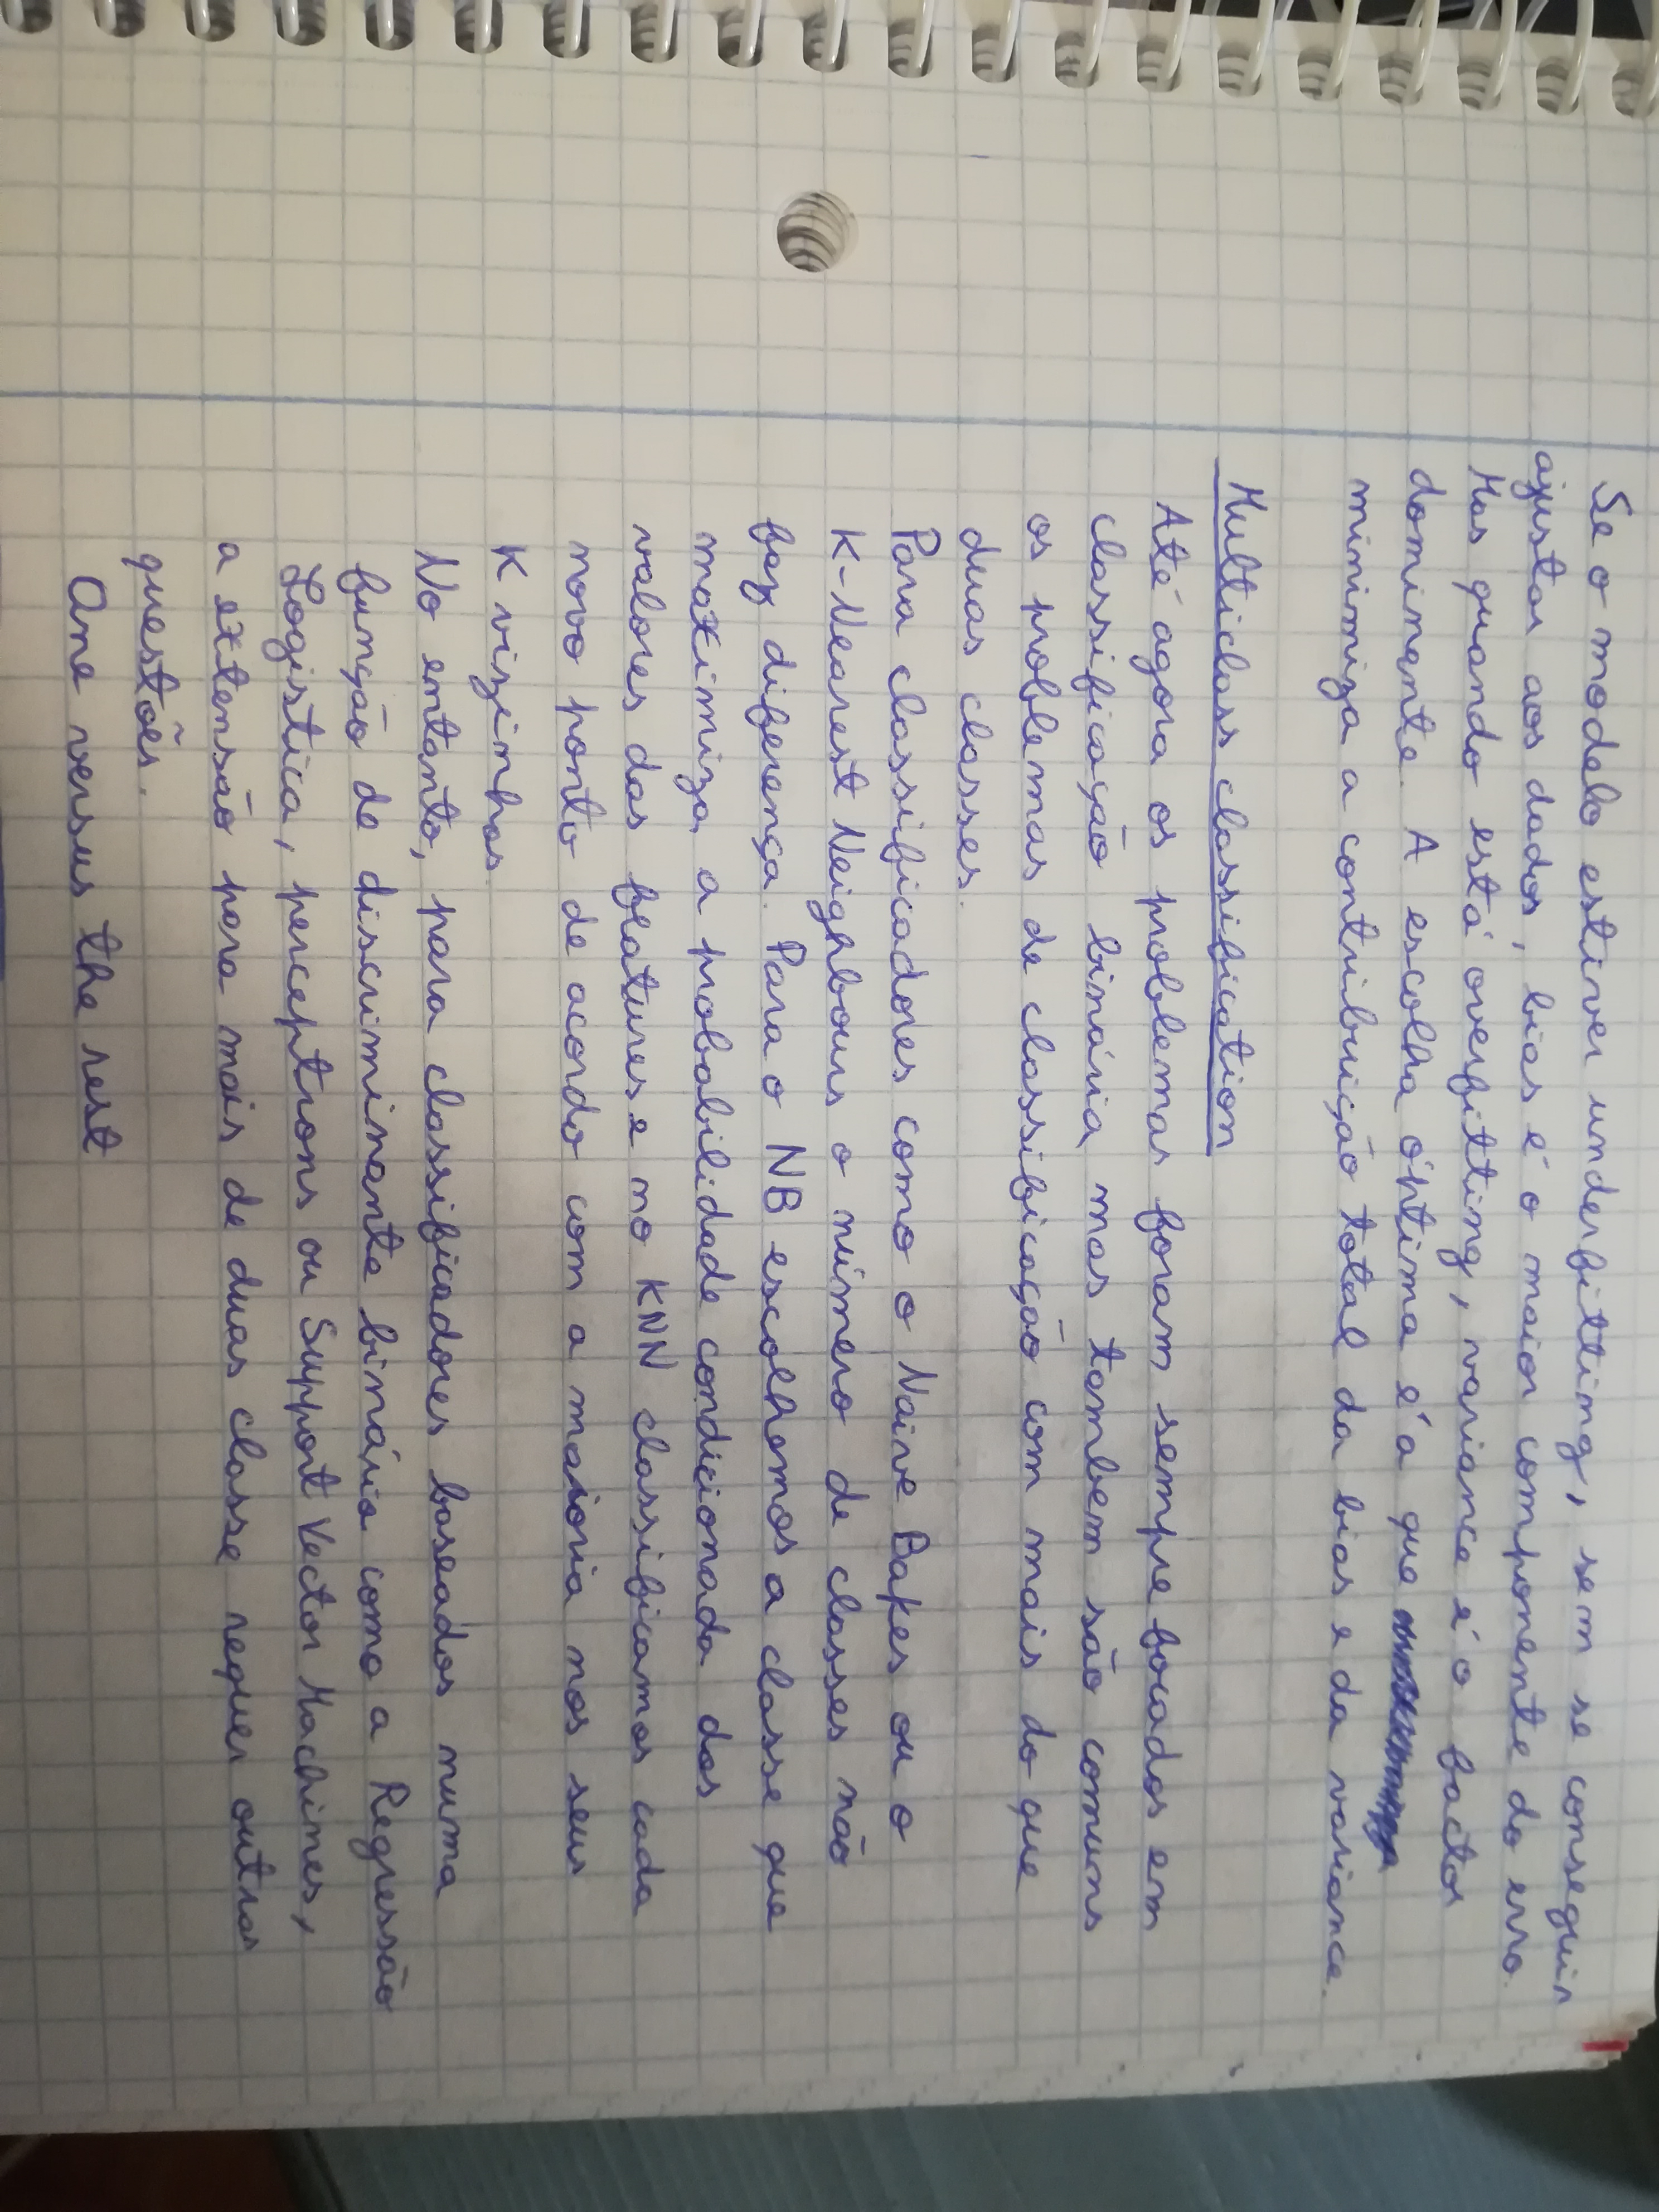 Se o modelo estiver underfitting, sem se conseguir
ajustar aos dados, bias é o maior componente do erro.
Mas quando está overfitting, variance é o factor
dominante. A escolha óptima é a que
minimiza a contribuição total da bias e da variance.
Multiclass classification
Até agora os problemas foram sempre focados em
classificação binária mas tambem são comuns
os problemas de classificação com mais do que
duas classes.
Para classificadores como o Naive Bayes ou o
K-Nearest Neighbours o número de classes não
faz diferença. Para o NB escolhemos a classe que
maximiza a probabilidade condicionada dos
valores das features e no KNN classificamos cada
novo ponto de acordo com a maioria nos seus
K vizinhos
No entanto, para classificadores baseados numa
função de discriminante binária como a Regressão
Logistica, perceptrons ou Support Vector Machines,
a extensão para mais de duas classe requer outras
questões.
One versus the rest